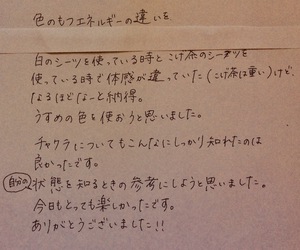 色のもつエネルギーの違いを
白のシーツを使っている時とこげ茶のシーツを
使っている時で体感が違っていた(こげ茶は重い)けど、
なるほどなーと納得。
うすめの色を使おうと思いました。
チャクラについてもこんなにしっかり知れたのは
良かったです。
自分の状態を知るときの参考にしようと思いました。
今日もとっても楽しかったです。
ありがとうございました!!